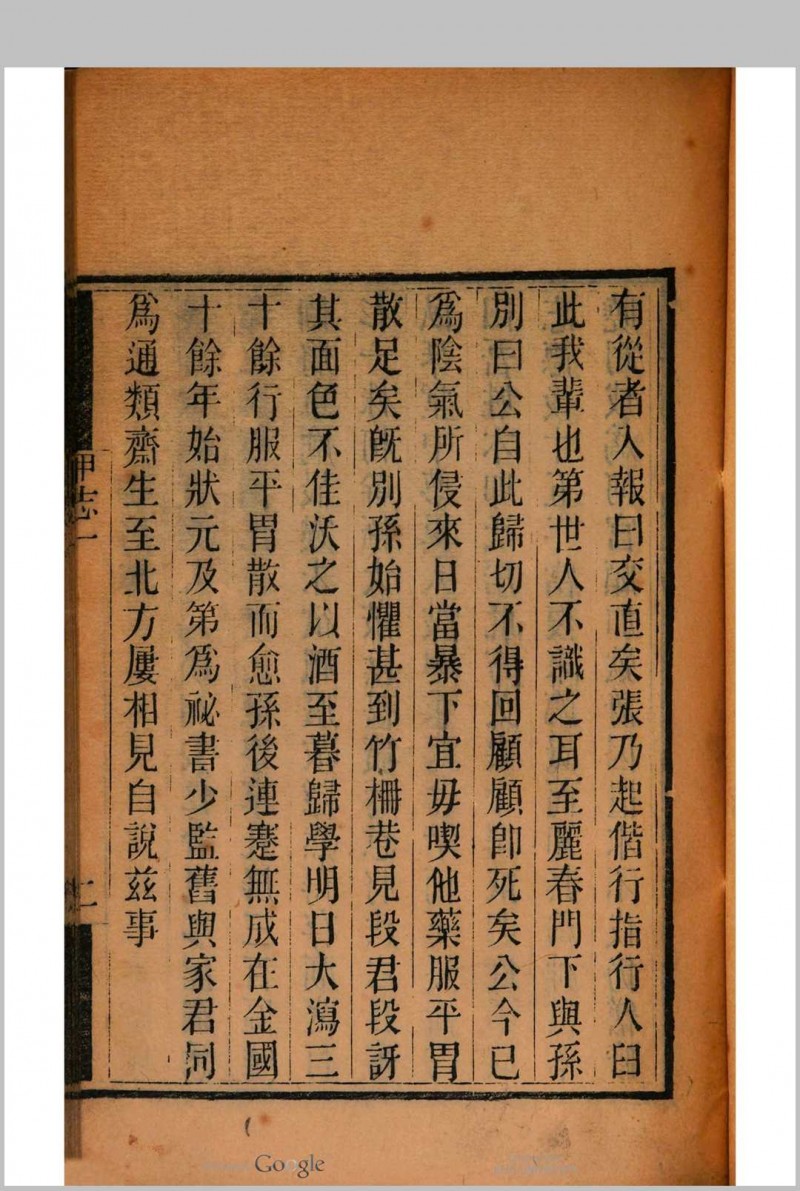 有從者入報曰交直矣張乃起偕行指行人曰
此我輩也第世人不識之耳至麗春門下與孫
別曰公自此歸切不得回顧顧即死矣公今已
爲陰氣所侵來日當暴下宜毋喫他藥服平胃
散足矣旣別孫始懼甚到竹柵巷見段君段訝
其面色不佳沃之以酒至暮歸學明日大瀉三
十餘行服平胃散而愈孫後連蹇無成在金國
十餘年始狀元及第爲祕書少監舊與家君同
爲通類齋生至北方屢相見自說兹事
甲志一
二
Google